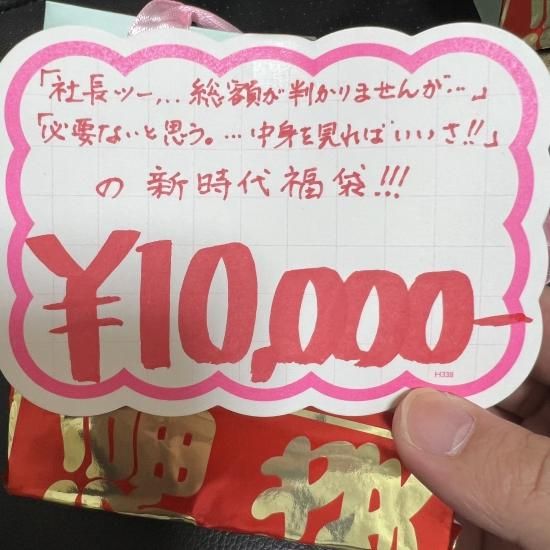 「社長ッー... 総額が判かりませんが…」
「必要ないと思う。…中身を見ればいいさ!!」
の新時代福袋!!!
¥10,000-
H338
福袋